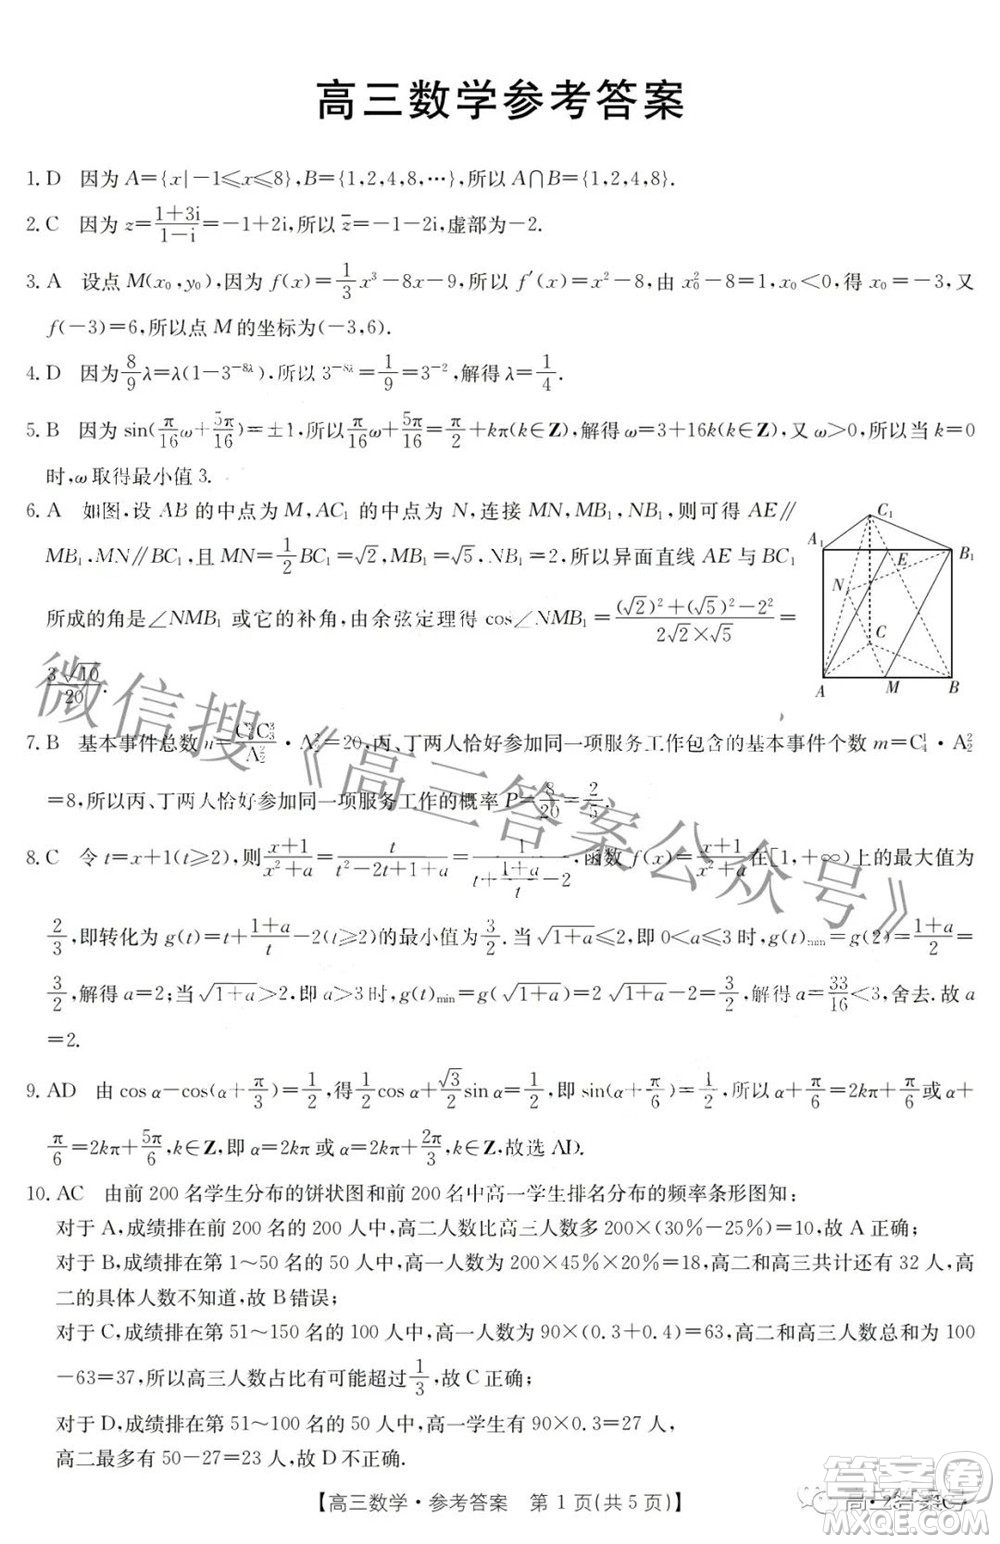 高三数学参考答案
1. D　因为 A={x|-1≤x≤8},B={1,2,4,8,…},所以 A∩B={1,2,4,8}.
2. C　因为 z=\frac{1+3i}{1-i}=-1+2i,所以 \overline{z}=-1-2i,虚部为-2.
3. A　设点 M(x₀,y₀),因为 f(x)=\frac{1}{3}x³-8x-9,所以 f′(x)=x²-8,由 x₀²-8=1,x₀<0,得 x₀=-3,又
f(-3)=6,所以点 M 的坐标为(-3,6).
4. D　因为\frac{8}{9}λ=λ(1-3^{-8λ}),所以 3^{-8λ}=\frac{1}{9}=3^{-2},解得 λ=\frac{1}{4}.
5. B　因为 sin(\frac{π}{16}ω+\frac{5π}{16})=±1,所以\frac{π}{16}ω+\frac{5π}{16}=\frac{π}{2}+kπ(k∈Z),解得 ω=3+16k(k∈Z),又 ω>0,所以当 k=0
时,ω取得最小值 3.
6. A　如图,设 AB 的中点为 M,AC₁ 的中点为 N,连接 MN,MB₁,NB₁,则可得 AE∥
MB₁,MN∥BC₁,且 MN=\frac{1}{2}BC₁=√2,MB₁=√5,NB₁=2,所以异面直线 AE 与 BC₁
所成的角是∠NMB₁ 或它的补角,由余弦定理得 cos∠NMB₁=\frac{(√2)²+(√5)²-2²}{2√2×√5}=
\frac{3√10}{20}.
C₁
A₁
B₁
E
N
C
A
M
B
7. B　基本事件总数 n=\frac{C₆³C₃³}{A₂²}·A₂²=20,丙、丁两人恰好参加同一项服务工作包含的基本事件个数 m=C₄¹·A₂²
=8,所以丙、丁两人恰好参加同一项服务工作的概率 P=\frac{8}{20}=\frac{2}{5}.
8. C　令 t=x+1(t≥2),则\frac{x+1}{x²+a}=\frac{t}{t²-2t+1+a}=\frac{1}{t+\frac{1+a}{t}-2},函数 f(x)=\frac{x+1}{x²+a}在[1,+∞)上的最大值为
\frac{2}{3},即转化为 g(t)=t+\frac{1+a}{t}-2(t≥2)的最小值为\frac{3}{2}.当√(1+a)≤2,即 0<a≤3 时,g(t)_{min}=g(2)=\frac{1+a}{2}=
\frac{3}{2},解得 a=2;当√(1+a)>2,即 a>3 时,g(t)_{min}=g(√(1+a))=2√(1+a)-2=\frac{3}{2},解得 a=\frac{33}{16}<3,舍去.故 a
=2.
9. AD　由 cos α-cos(α+\frac{π}{3})=\frac{1}{2},得\frac{1}{2}cos α+\frac{√3}{2}sin α=\frac{1}{2},即 sin(α+\frac{π}{6})=\frac{1}{2},所以 α+\frac{π}{6}=2kπ+\frac{π}{6}或 α+
\frac{π}{6}=2kπ+\frac{5π}{6},k∈Z,即 α=2kπ 或 α=2kπ+\frac{2π}{3},k∈Z,故选 AD.
10. AC　由前 200 名学生分布的饼状图和前 200 名中高一学生排名分布的频率条形图知;
对于 A,成绩排在前 200 名的 200 人中,高二人数比高三人数多 200×(30%-25%)=10,故 A 正确;
对于 B,成绩排在第 1～50 名的 50 人中,高一人数为 200×45%×20%=18,高二和高三共计还有 32 人,高
二的具体人数不知道,故 B 错误;
对于 C,成绩排在第 51～150 名的 100 人中,高一人数为 90×(0.3+0.4)=63,高二和高三人数总和为 100
-63=37,所以高三人数占比有可能超过\frac{1}{3},故 C 正确;
对于 D,成绩排在第 51～100 名的 50 人中,高一学生有 90×0.3=27 人,
高二最多有 50-27=23 人,故 D 不正确.
【高三数学·参考答案　第 1 页(共 5 页)】
微信搜《高三答案公众号》
答案圈
MXQE.COM